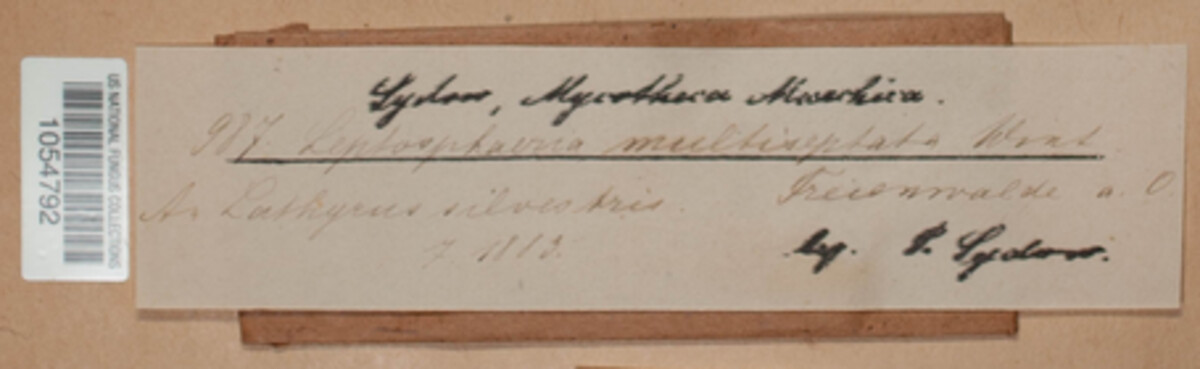 US NATIONAL FUNGUS COLLECTIONS
1054792
Sydow, Mycotheca Marchica.
987. Leptosphaeria multiseptata Wint
An Lathyrus silvestris. Freienwalde a. O.
7 1883.
leg. P. Sydow.